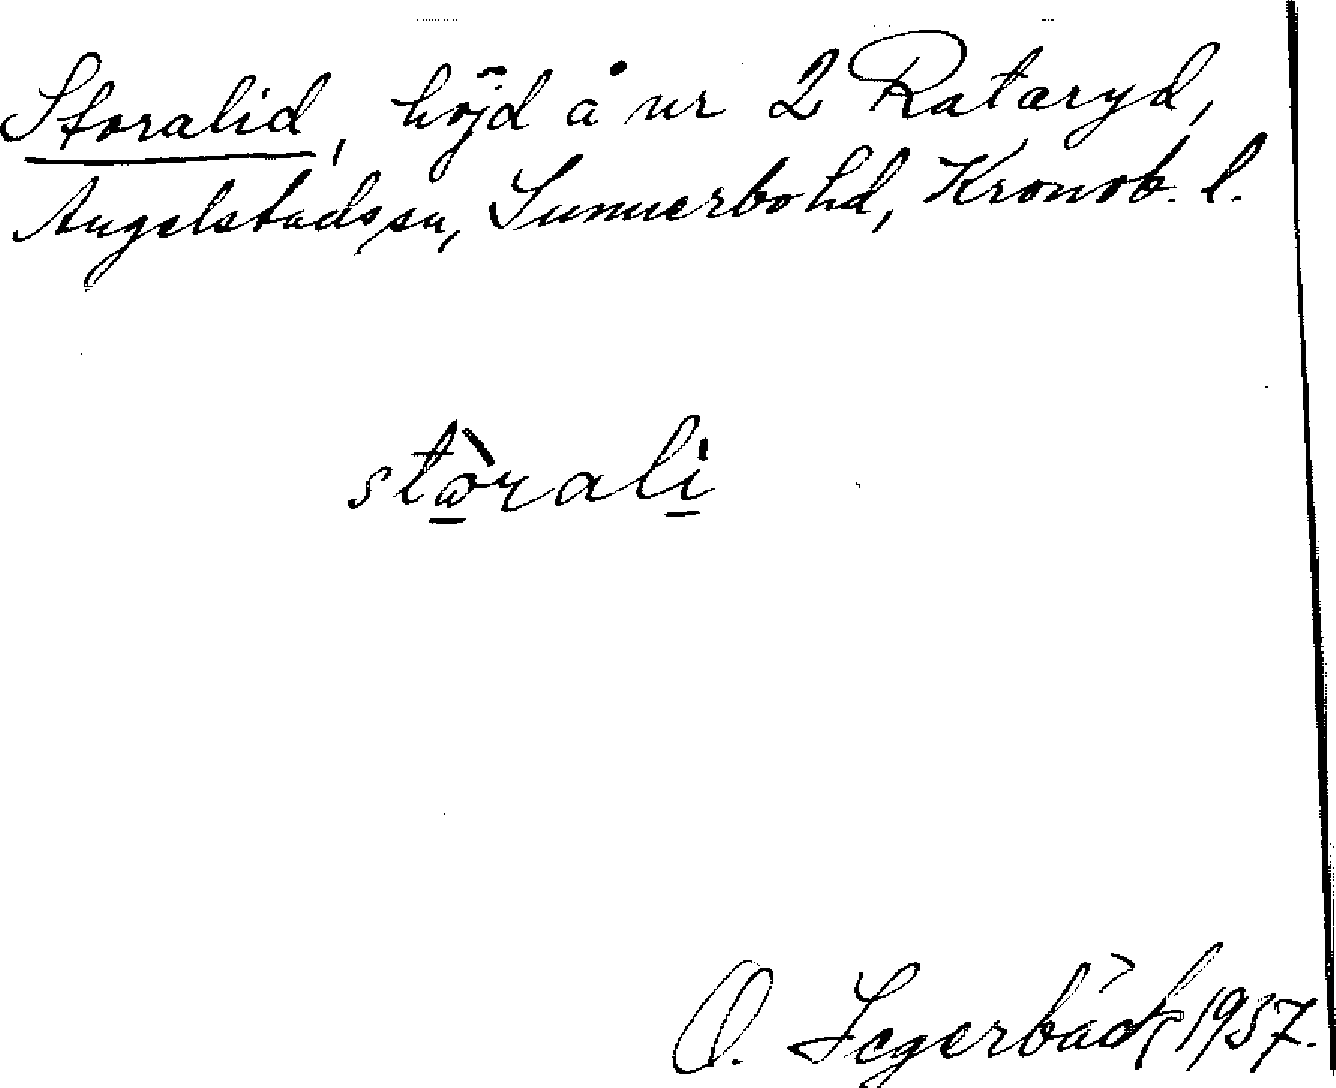 Storalid, höjd å nr 2 Rataryd,
Angelstads sn, Sunnerbo hd, Kronob. l.
stòrali
O. Segerbäck 1937.